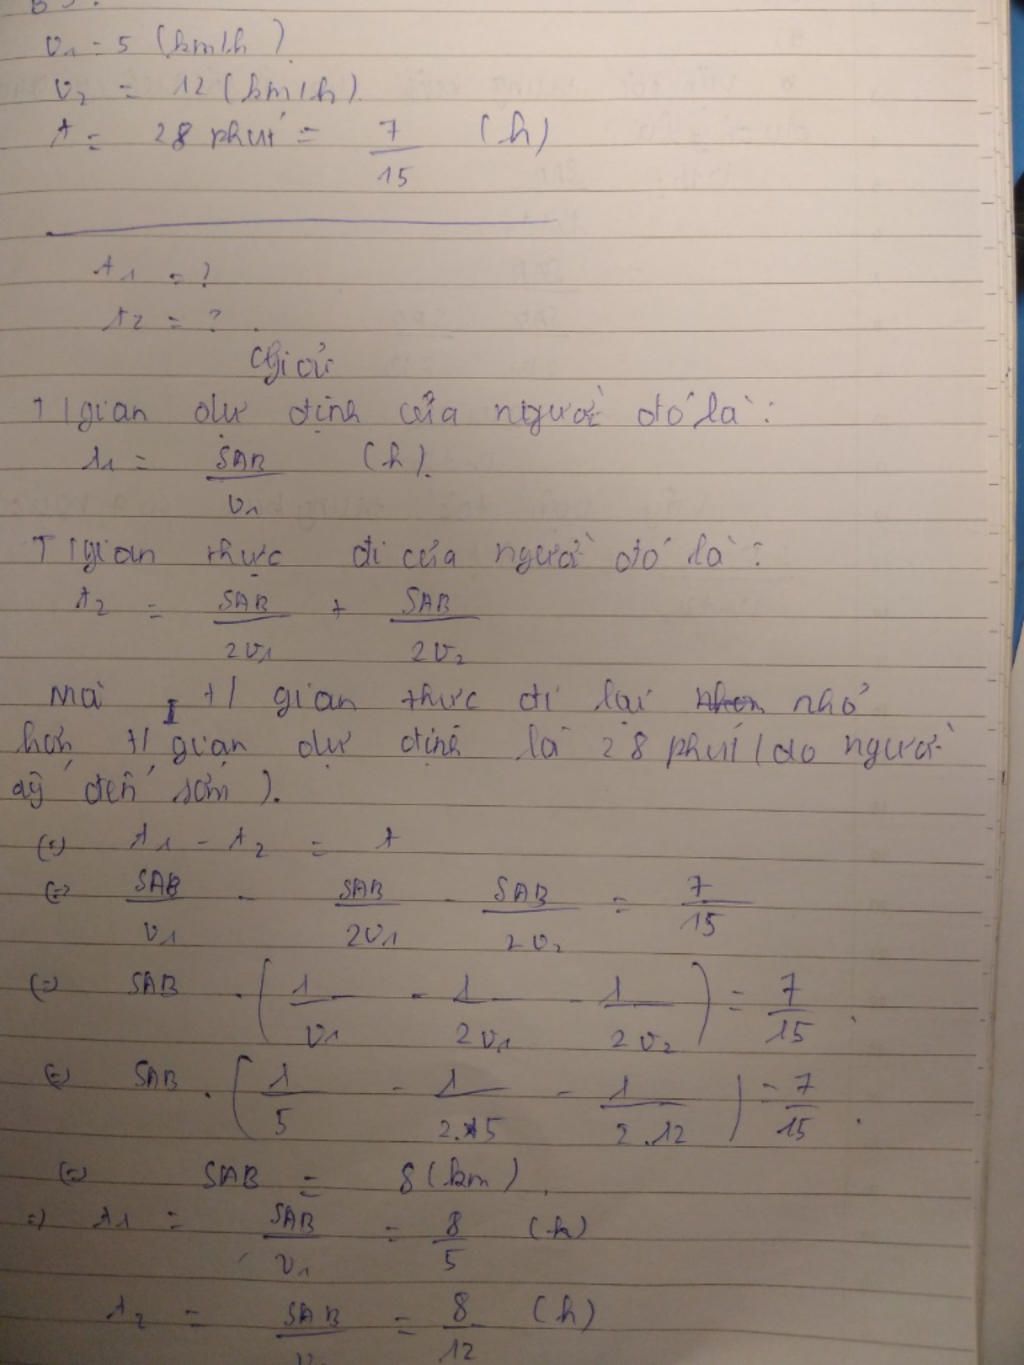 v₁ = 5 (km/h)
v₂ = 12 (km/h).
t = 28 phút = 7/15 (h)
t₁ = ?
t₂ = ?.
Giải
T/gian dự định của người đó là:
t₁ = SAB/v₁ (h).
T/gian thực đi của người đó là:
t₂ = SAB/2v₁ + SAB/2v₂
Mà t/gian thực đi lại nhỏ
hơn t/gian dự định là 28 phút (do người
ấy đến sớm).
(=) t₁ - t₂ = t
(=) SAB/v₁ - SAB/2v₁ - SAB/2v₂ = 7/15
(=) SAB . (1/v₁ - 1/2v₁ - 1/2v₂) = 7/15.
(=) SAB . (1/5 - 1/2.5 - 1/2.12) = 7/15.
(=) SAB = 8 (km).
=) t₁ = SAB/v₁ = 8/5 (h)
t₂ = SAB = 8/12 (h)